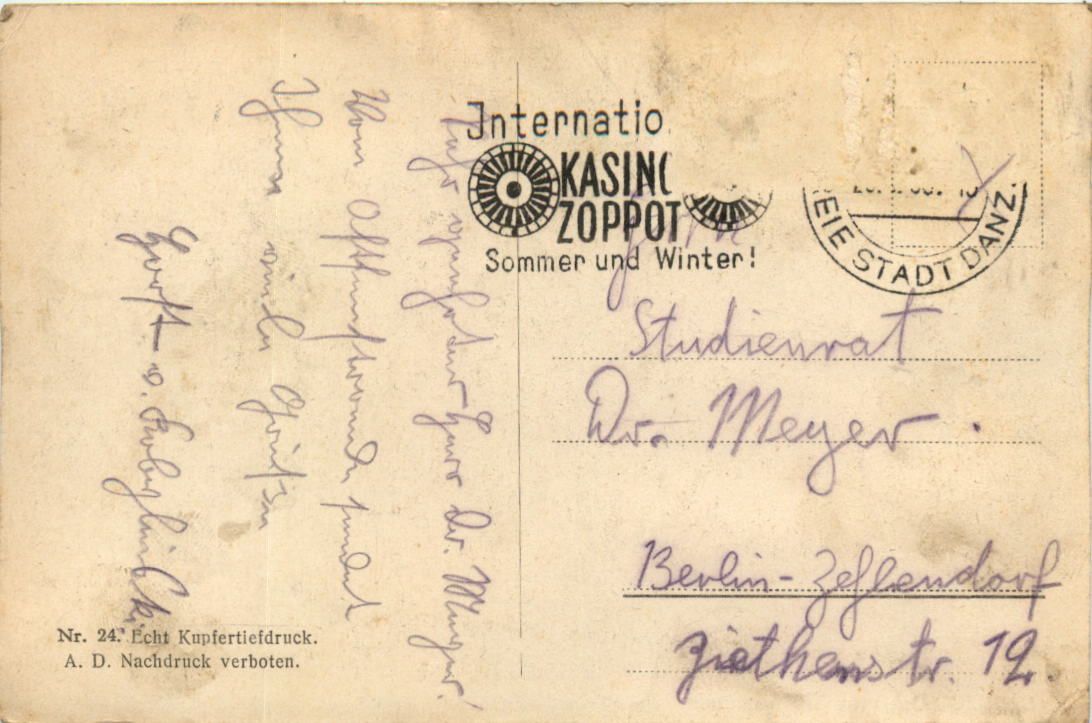 Internatio
KASINO
ZOPPOT
Sommer und Winter!
EIE STADT DANZ.
Sehr geehrter Herr Dr. Meyer!
Vom Ostseestrande sendet
Ihnen viele Grüße
Horst v. Kobylinski.
Herrn
Studienrat
Dr. Meyer.
Berlin-Zehlendorf
Ziethenstr.
Nr. 24. Echt Kupfertiefdruck.
A. D. Nachdruck verboten.